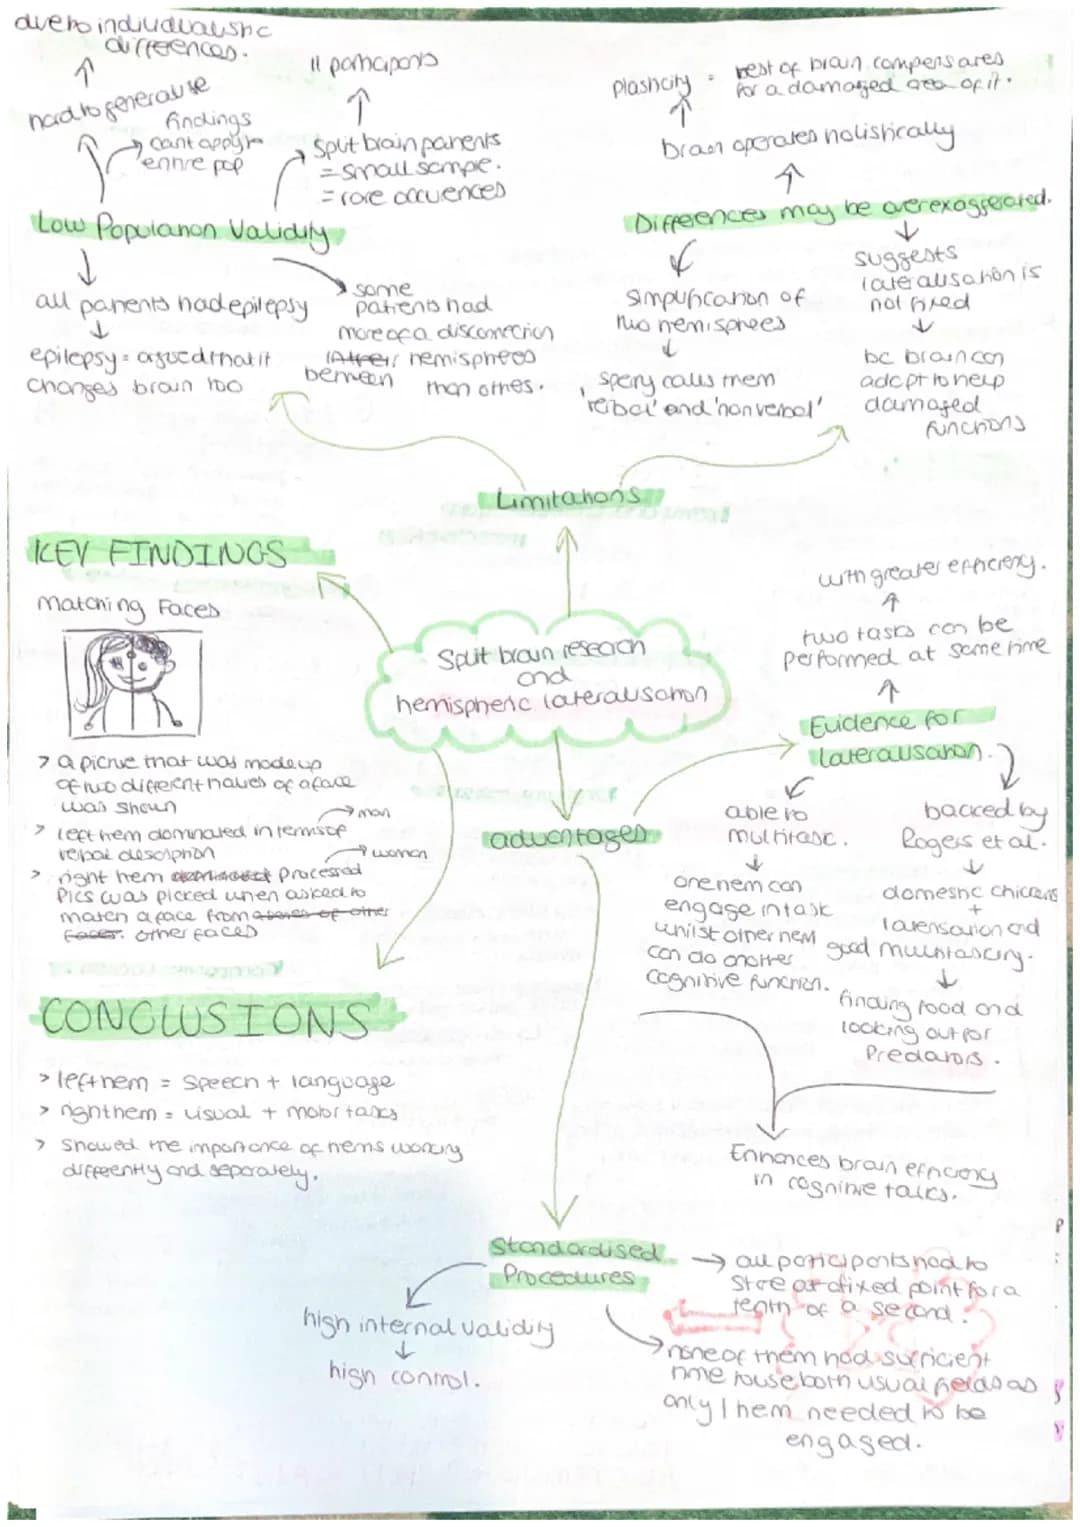 due to individualistic
differences.
hard to generalise
findings
cant apply to
entire pop
11 participants
split brain patients
= small sample.
= rare occurences
Low Population Validity
all patients had epilepsy
epilepsy = argued that it
changes brain too
some
patients had
more of a disconnection
between hemispheres
than others.
plasticity = rest of brain compensates
for a damaged area of it.
brain operates holistically
Differences may be overexaggerated.
simplification of
two hemispheres
spery calls them
'verbal' and 'nonverbal'
suggests
lateralisation is
not fixed
bc brain can
adapt to help
damaged
functions
Limitations
KEY FINDINGS
Matching Faces
> a picture that was made up
of two different halves of a face
was shown
> left hem dominated in terms of → man
verbal description
> right hem dominated processed → woman
Pics was picked when asked to
match a face from a series of other
faces. other faces
Split brain research
and
hemispheric lateralisation
with greater efficiency.
two tasks can be
performed at same time
Evidence for
lateralisation.
able to
multitask.
one hem can
engage in task
whilst other hem
can do another
cognitive function.
backed by
Rogers et al.
domestic chickens
+
lateralisation and
good multitasking.
finding food and
looking out for
Predators.
Enhances brain efficiency
in cognitive talks.
advantages
CONCLUSIONS
> left hem = speech + language
> right hem = visual + motor tasks
> showed the importance of hems working
differently and separately.
Standardised
Procedures
high internal validity
high control.
→ all participants had to
stare at a fixed point for a
tenth of a second.
none of them had sufficient
time to use both visual fields as
only 1 hem needed to be
engaged.